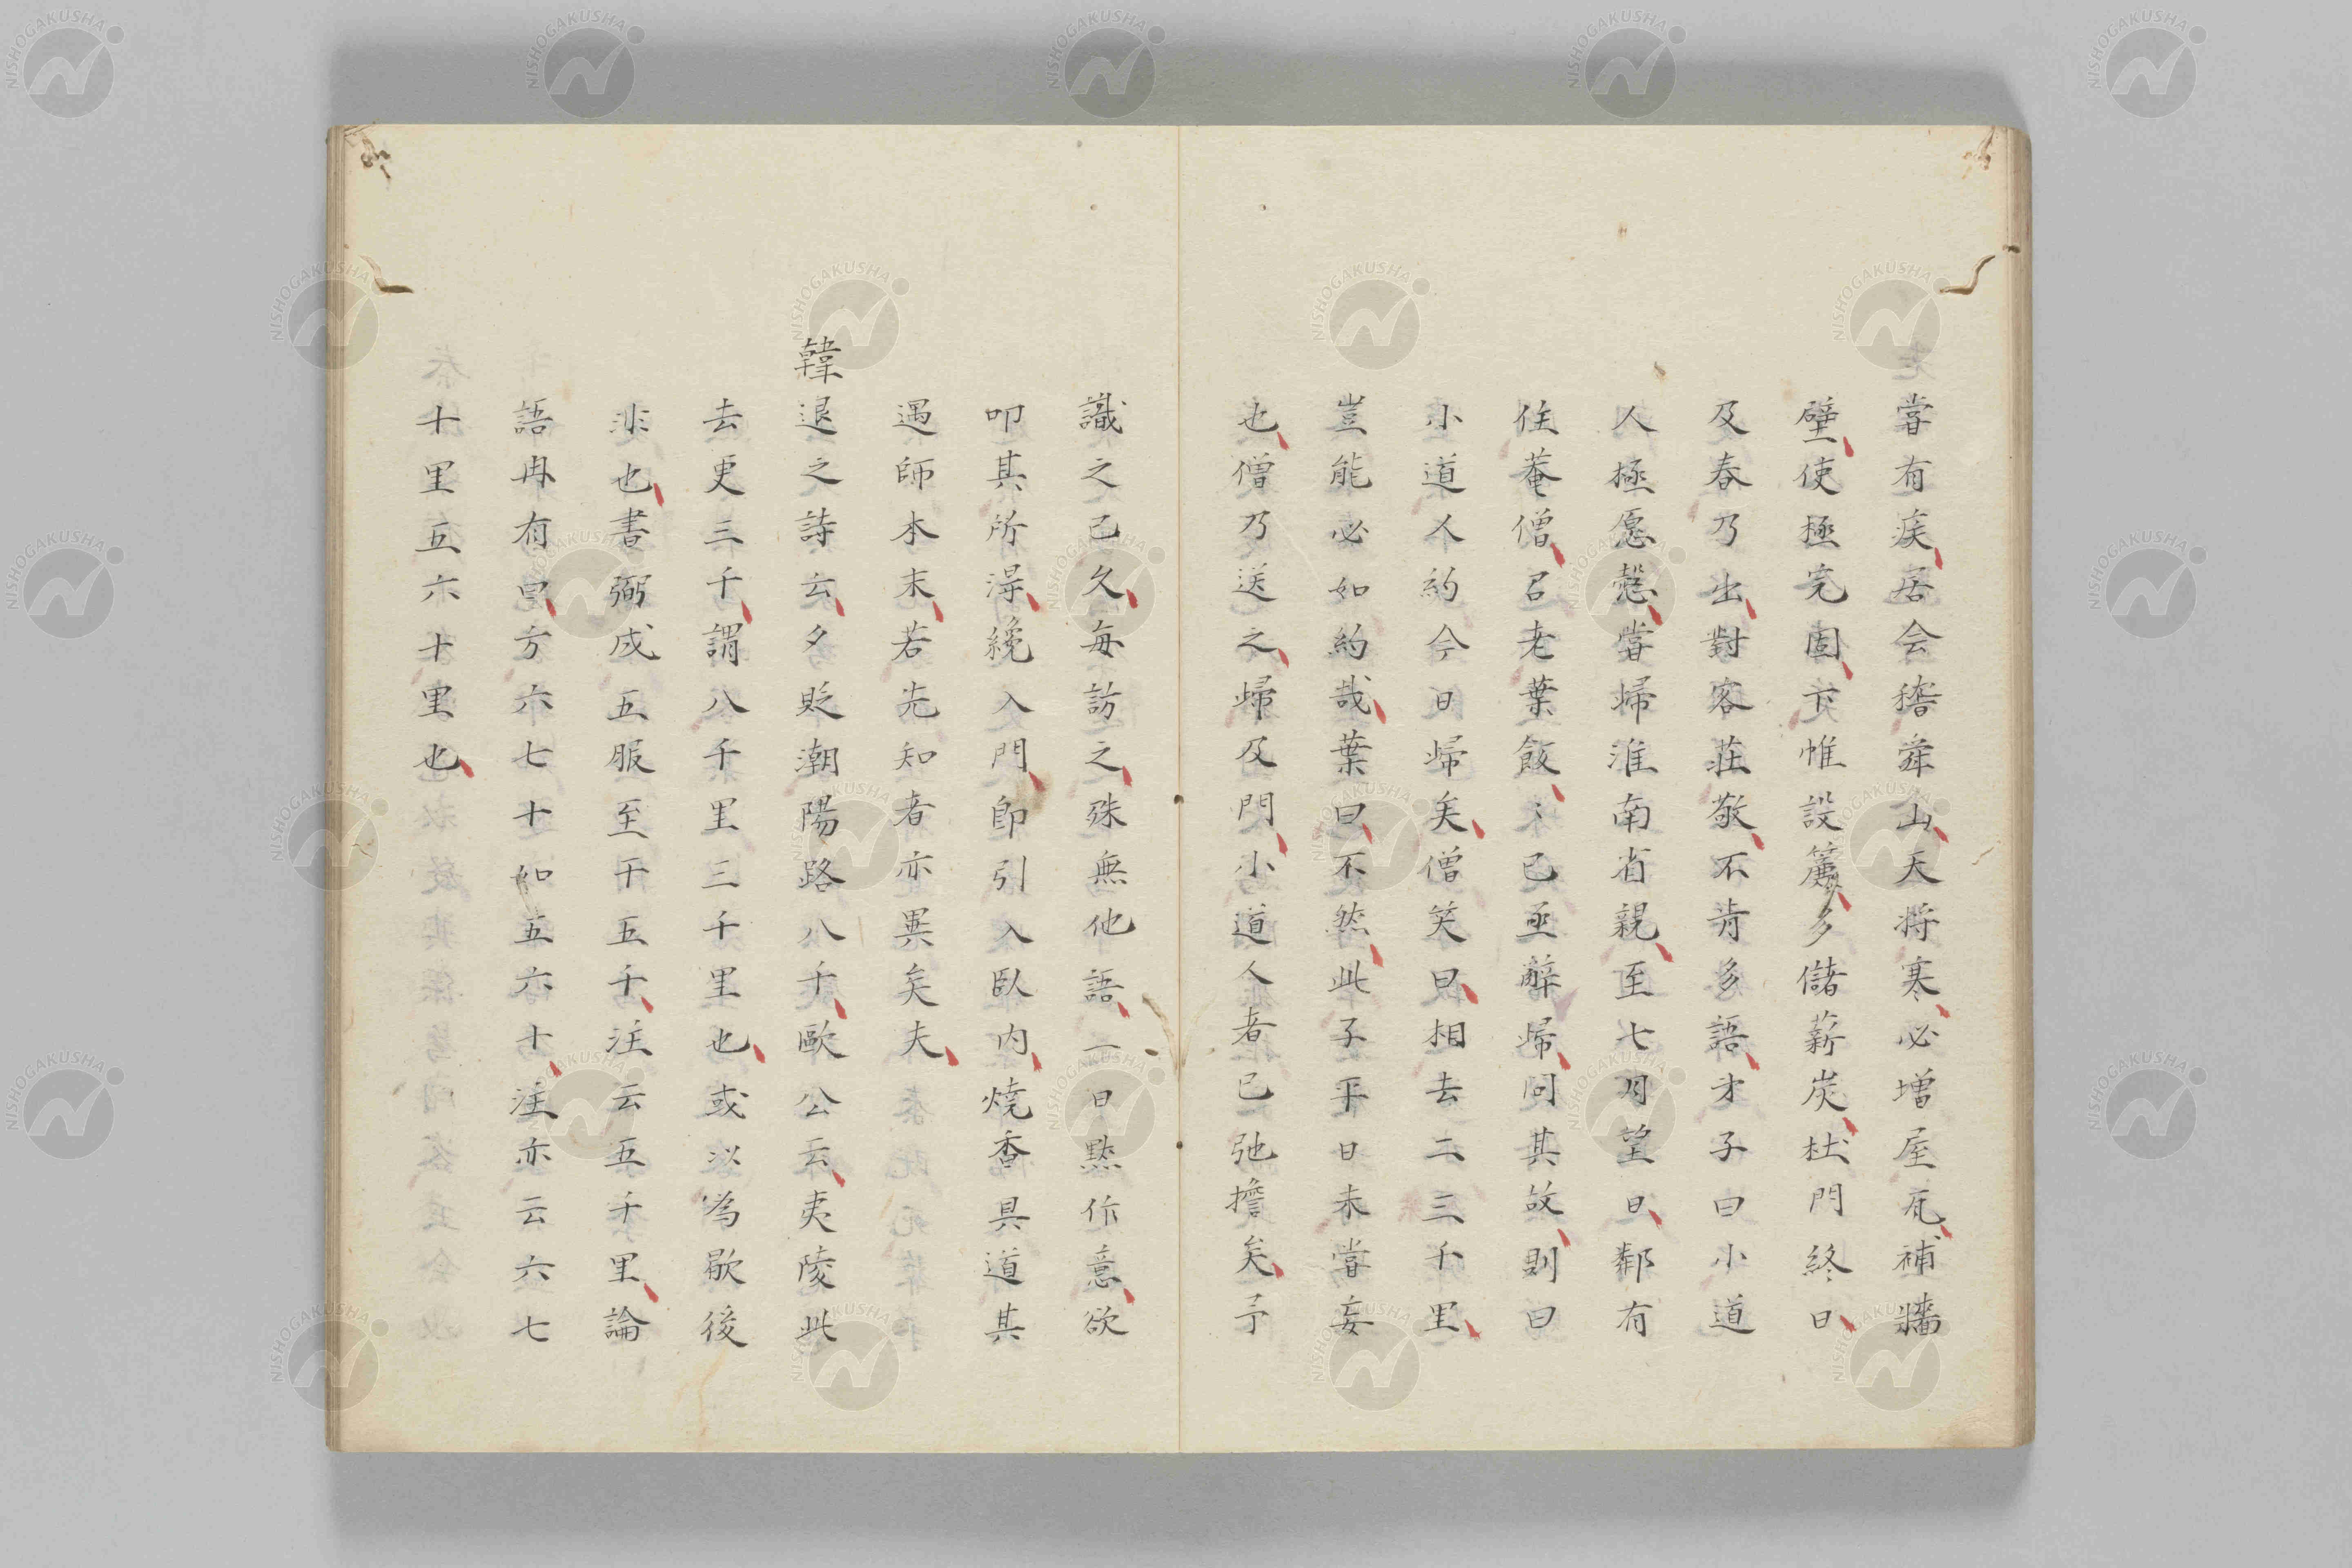 嘗有疾居会稽舜山天将寒必増屋瓦補牆
壁使極完固下帷設簾多儲薪炭杜門終日
及春乃出對客荘敬不肯多語才子曰小道
人極愿慤嘗歸淮南省親至七月望日鄰有
住菴僧召老葉飯〻已亟辭歸問其故則曰
小道人約今日歸矣僧笑曰相去二三千里
豈能必如約哉葉曰不然此子平日未嘗妄
也僧乃送之歸及門小道人者已弛擔矣予
識之已久每訪之殊無他語一日黙作意欲
叩其所得纔入門即引入臥内燒香具道其
遇師本末若先知者亦異矣夫
韓退之詩云夕貶潮陽路八千歐公云夷陵此
去更三千謂八千里三千里也或以為歇後
非也書弼成五服至于五千注云五千里論
語冉有曰方六七十如五六十注亦云六七
十里五六十里也
NISHOGAKUSHA